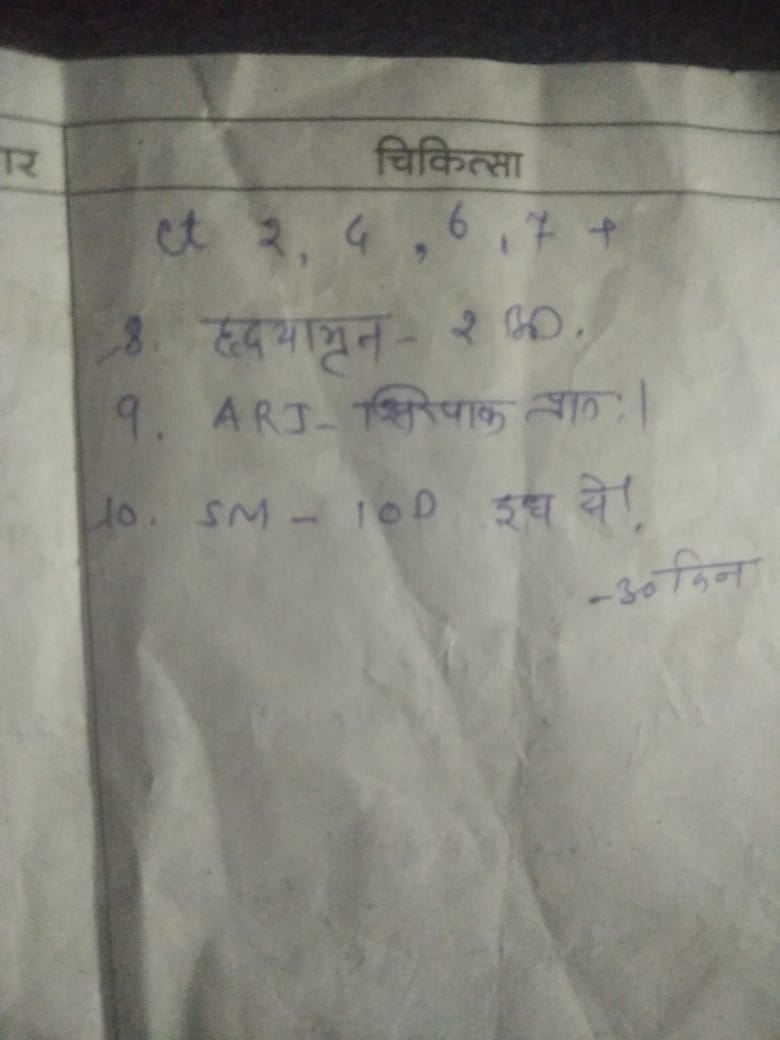 गर चिकित्सा
ct २, ५, 6, 7 +
8. हृदयामृत - २
9. ARJ - क्षिरपाक प्रातः।
10. SM - 10D दुध से।
- ३० दिन